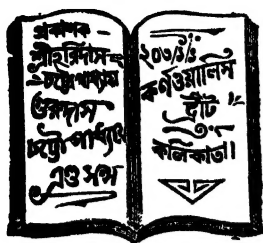 প্রকাশক
শ্রীহরিদাস
চট্টোপাধ্যায়
গুরুদাস
চট্টোপাধ্যায়
এণ্ড সন্স
২০৩/১/১
কর্নওয়ালিস
ষ্ট্রীট
কলিকাতা।।